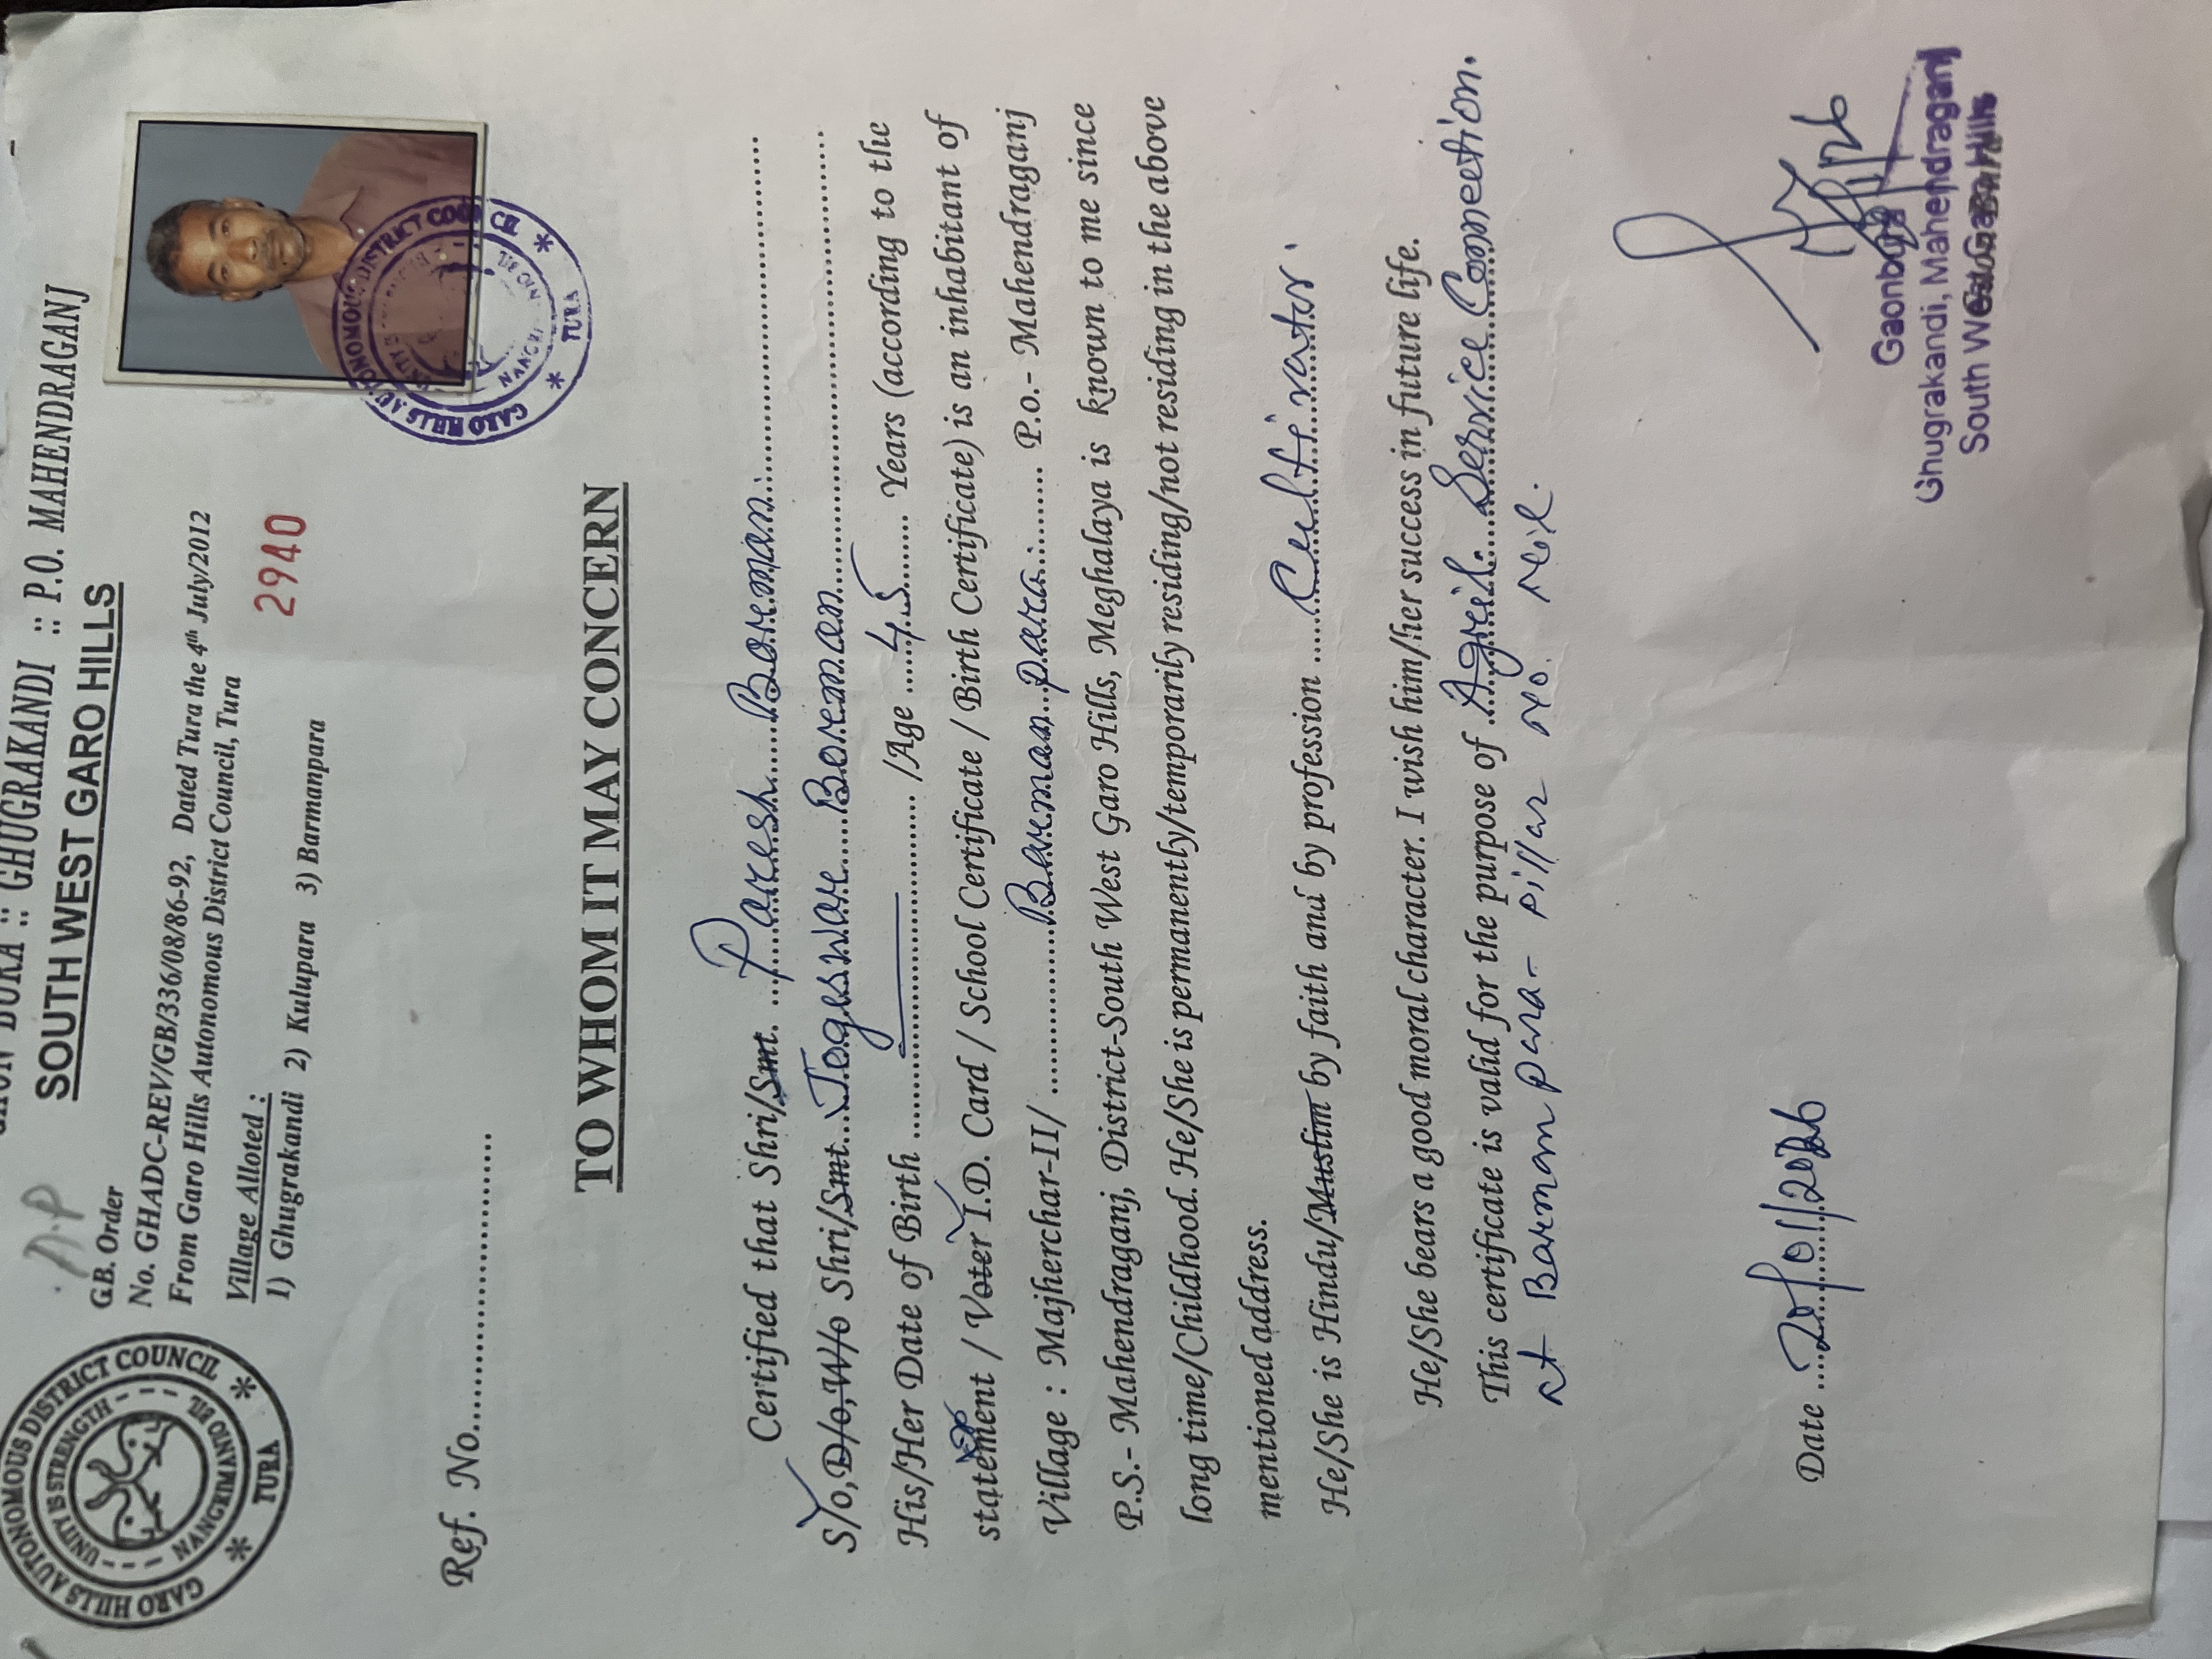 BURA :: GHUGRAKANDI :: P.O. MAHENDRAGANJ
SOUTH WEST GARO HILLS
A.P
GARO HILLS AUTONOMOUS DISTRICT COUNCIL
UNITY IS STRENGTH
TURA
G.B. Order
No. GHADC-REV/GB/336/08/86-92, Dated Tura the 4th July/2012
From Garo Hills Autonomous District Council, Tura
Village Alloted :
1) Ghugrakandi 2) Kulupara 3) Barmanpara
2940
GARO HILLS AUTONOMOUS DISTRICT COUNCIL
TURA
Ref. No.
TO WHOM IT MAY CONCERN
Certified that Shri/Smt. Paresh Barman
S/o, D/o, W/o Shri/Smt. Jogeswar Barman
His/Her Date of Birth /Age 45 Years (according to the
statement / Voter I.D. Card / School Certificate / Birth Certificate) is an inhabitant of
Village : Majherchar-II/ Barman para P.o.- Mahendraganj
P.S.- Mahendraganj, District-South West Garo Hills, Meghalaya is known to me since
long time/Childhood. He/She is permanently/temporarily residing/not residing in the above
mentioned address.
He/She is Hindu/Muslim by faith and by profession Cultivator.
He/She bears a good moral character. I wish him/her success in future life.
This certificate is valid for the purpose of Agril. Service Connection.
at Barman para- pillar no. Nil.
Date 20/01/2026
Gaonbura
Ghugrakandi, Mahendraganj
South West Garo Hills